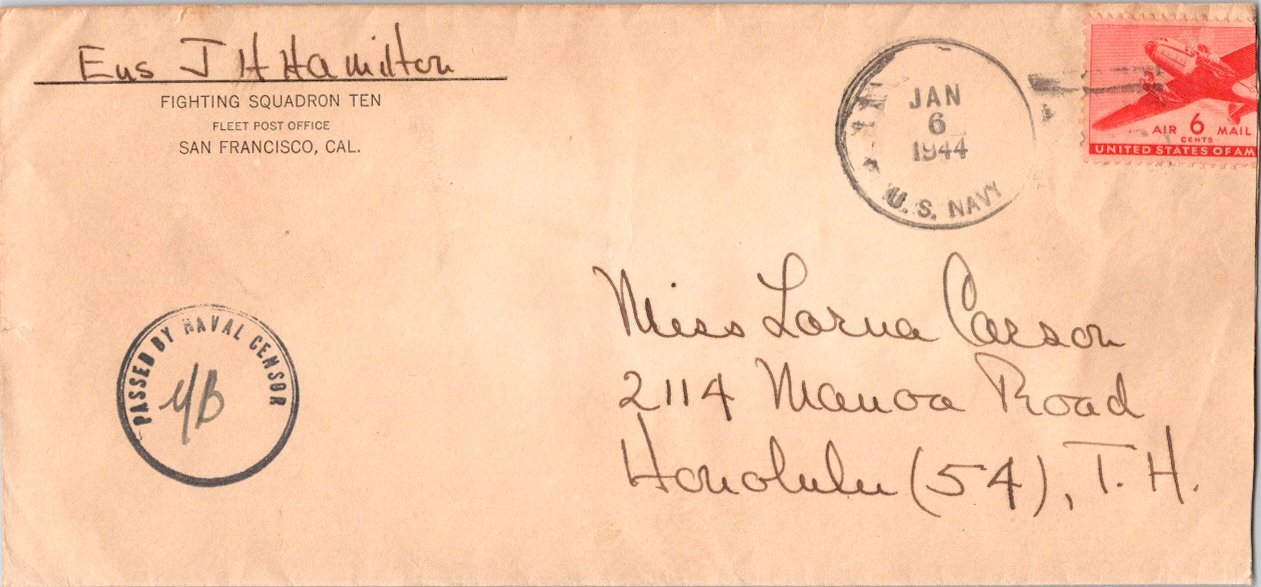 Ens J H Hamilton
FIGHTING SQUADRON TEN
FLEET POST OFFICE
SAN FRANCISCO, CAL.
JAN
6
1944
U. S. NAVY
AIR 6 MAIL
CENTS
UNITED STATES OF AM
PASSED BY NAVAL CENSOR
Miss Lorna Carson
2114 Manoa Road
Honolulu (54), T. H.